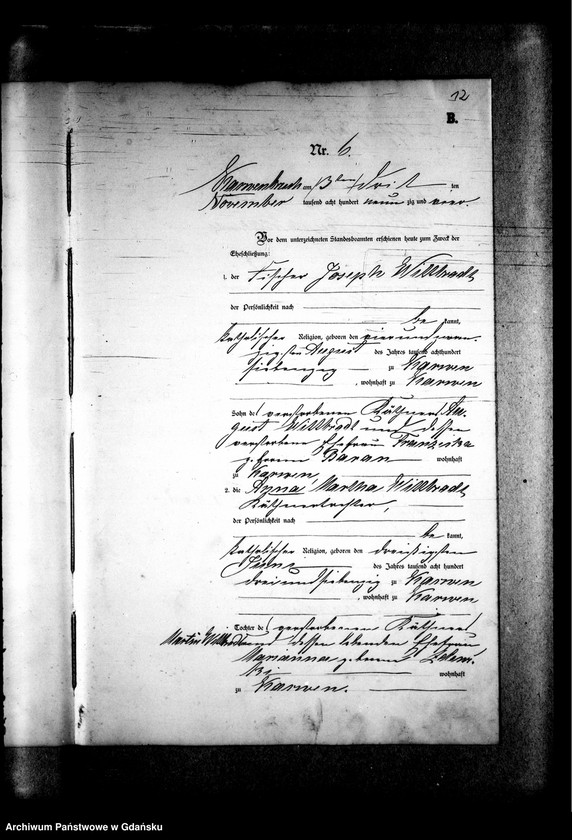 12
B.
Nr. 6.
Karwenbruch am 13ten / dreizehn ten
November tausend acht hundert neun zig und vier.
Vor dem unterzeichneten Standesbeamten erschienen heute zum Zweck der
Eheschließung:
1. der Fischer Joseph Willbradt
der Persönlichkeit nach
be kannt,
katholischer Religion, geboren den vierundzwan-
zigsten August des Jahres tausend achthundert
siebenzig zu Karwen
, wohnhaft zu Karwen
Sohn des verstorbenen Käthners Au-
gust Willbradt und dessen
verstorbene Ehefrau Franziska
geborene Baran wohnhaft
zu Karwen,
2. die Anna Martha Willbradt
Käthnertochter,
der Persönlichkeit nach
be kannt,
katholischer Religion, geboren den dreißigsten
Juni des Jahres tausend acht hundert
dreiundsiebenzig zu Karwen
, wohnhaft zu Karwen
Tochter des verstorbenen Käthners
Martin Willbradt und dessen lebenden Ehefrau
Marianna geborene
wohnhaft
zu Karwen.
Archiwum Państwowe w Gdańsku